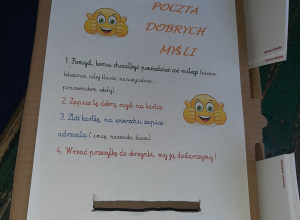 POCZTA
DOBRYCH
MYŚLI
1. Pomyśl, komu chciałbyś powiedzieć coś miłego (
klasie, nauczycielowi,
pracownikom szkoły)
2. Zapisz tę dobrą myśl na kartce.
3. Złóż kartkę, na wierzchu zapisz
adresata ( imię, nazwisko, klasa)
4. Wrzuć przesyłkę do skrzynki, my ją dostarczymy!